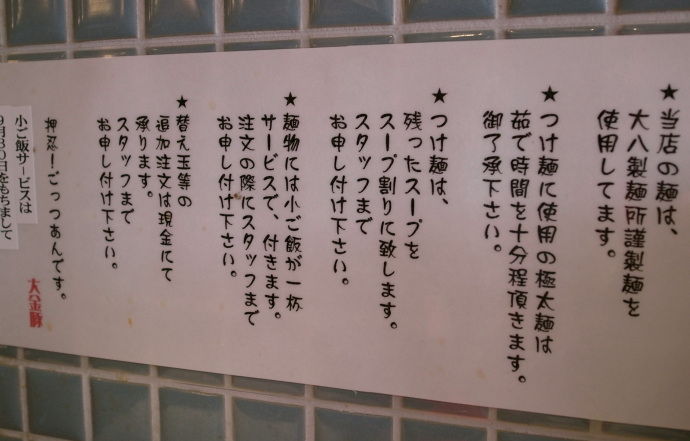 ★当店の麺は、
大八製麺所謹製麺を
使用してます。
★つけ麺に使用の極太麺は
茹で時間を十分程頂きます。
御了承下さい。
★つけ麺は、
残ったスープを
スープ割りに致します。
スタッフまで
お申し付け下さい。
★麺物には小ご飯が一杯
サービスで、付きます。
注文の際にスタッフまで
お申し付け下さい。
★替え玉等の
追加注文は現金にて
承ります。
スタッフまで
お申し付け下さい。
押忍!ごっつあんです。
大金豚
小ご飯サービスは
9月30日をもちまして